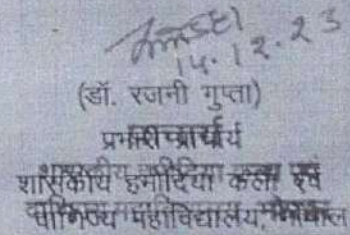 14.12.23
(डॉ. रजनी गुप्ता)
प्रभारी प्राचार्य
शासकीय हमीदिया कला एवं
वाणिज्य महाविद्यालय, भोपाल